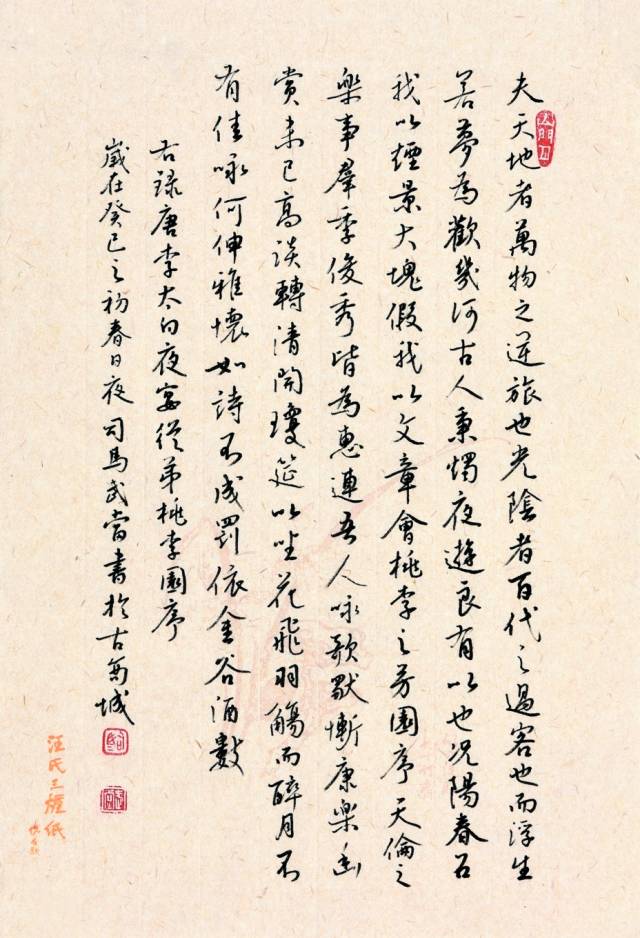 夫天地者萬物之逆旅也光陰者百代之過客也而浮生
若夢為歡幾何古人秉燭夜遊良有以也況陽春召
我以煙景大塊假我以文章會桃李之芳園序天倫之
樂事羣季俊秀皆為惠連吾人詠歌獨慚康樂幽
賞未已高談轉清開瓊筵以坐花飛羽觴而醉月不
有佳詠何伸雅懷如詩不成罰依金谷酒數
右錄唐李太白夜宴從弟桃李園序
歲在癸巳之初春日夜司馬武當書於古城
汪氏三紙